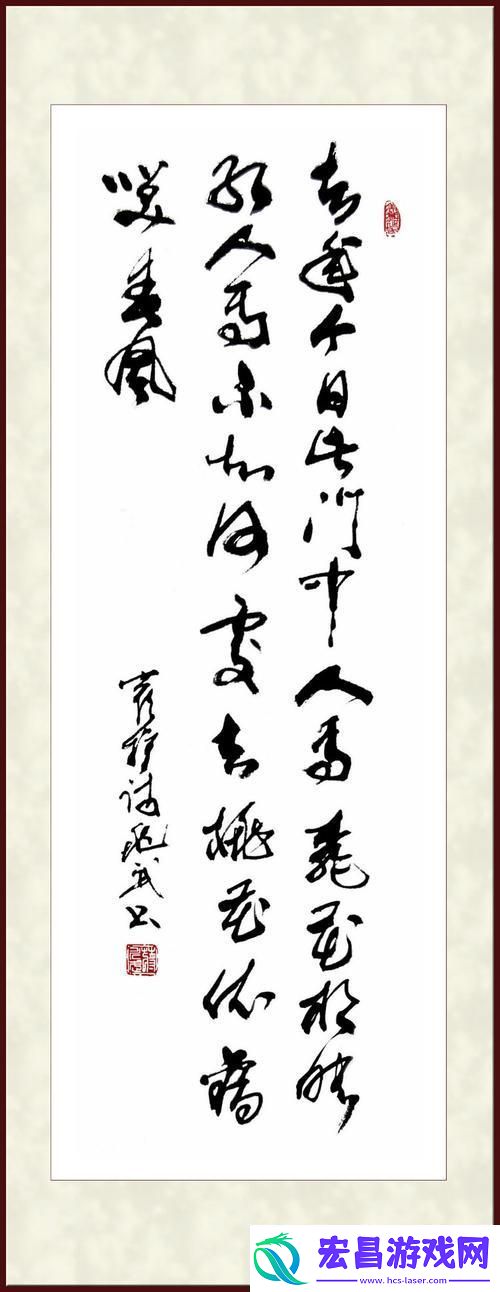 去年今日此門中人面桃花相映
紅人面不知何處去桃花依舊
咲春風
崔護詩 武书
宏昌游戏网
www.hcs-laser.com